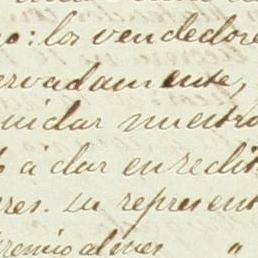 o: los vendedore
ervadamente,
uidar nuestro
á dar en redit
res. su represent
premio al mes "